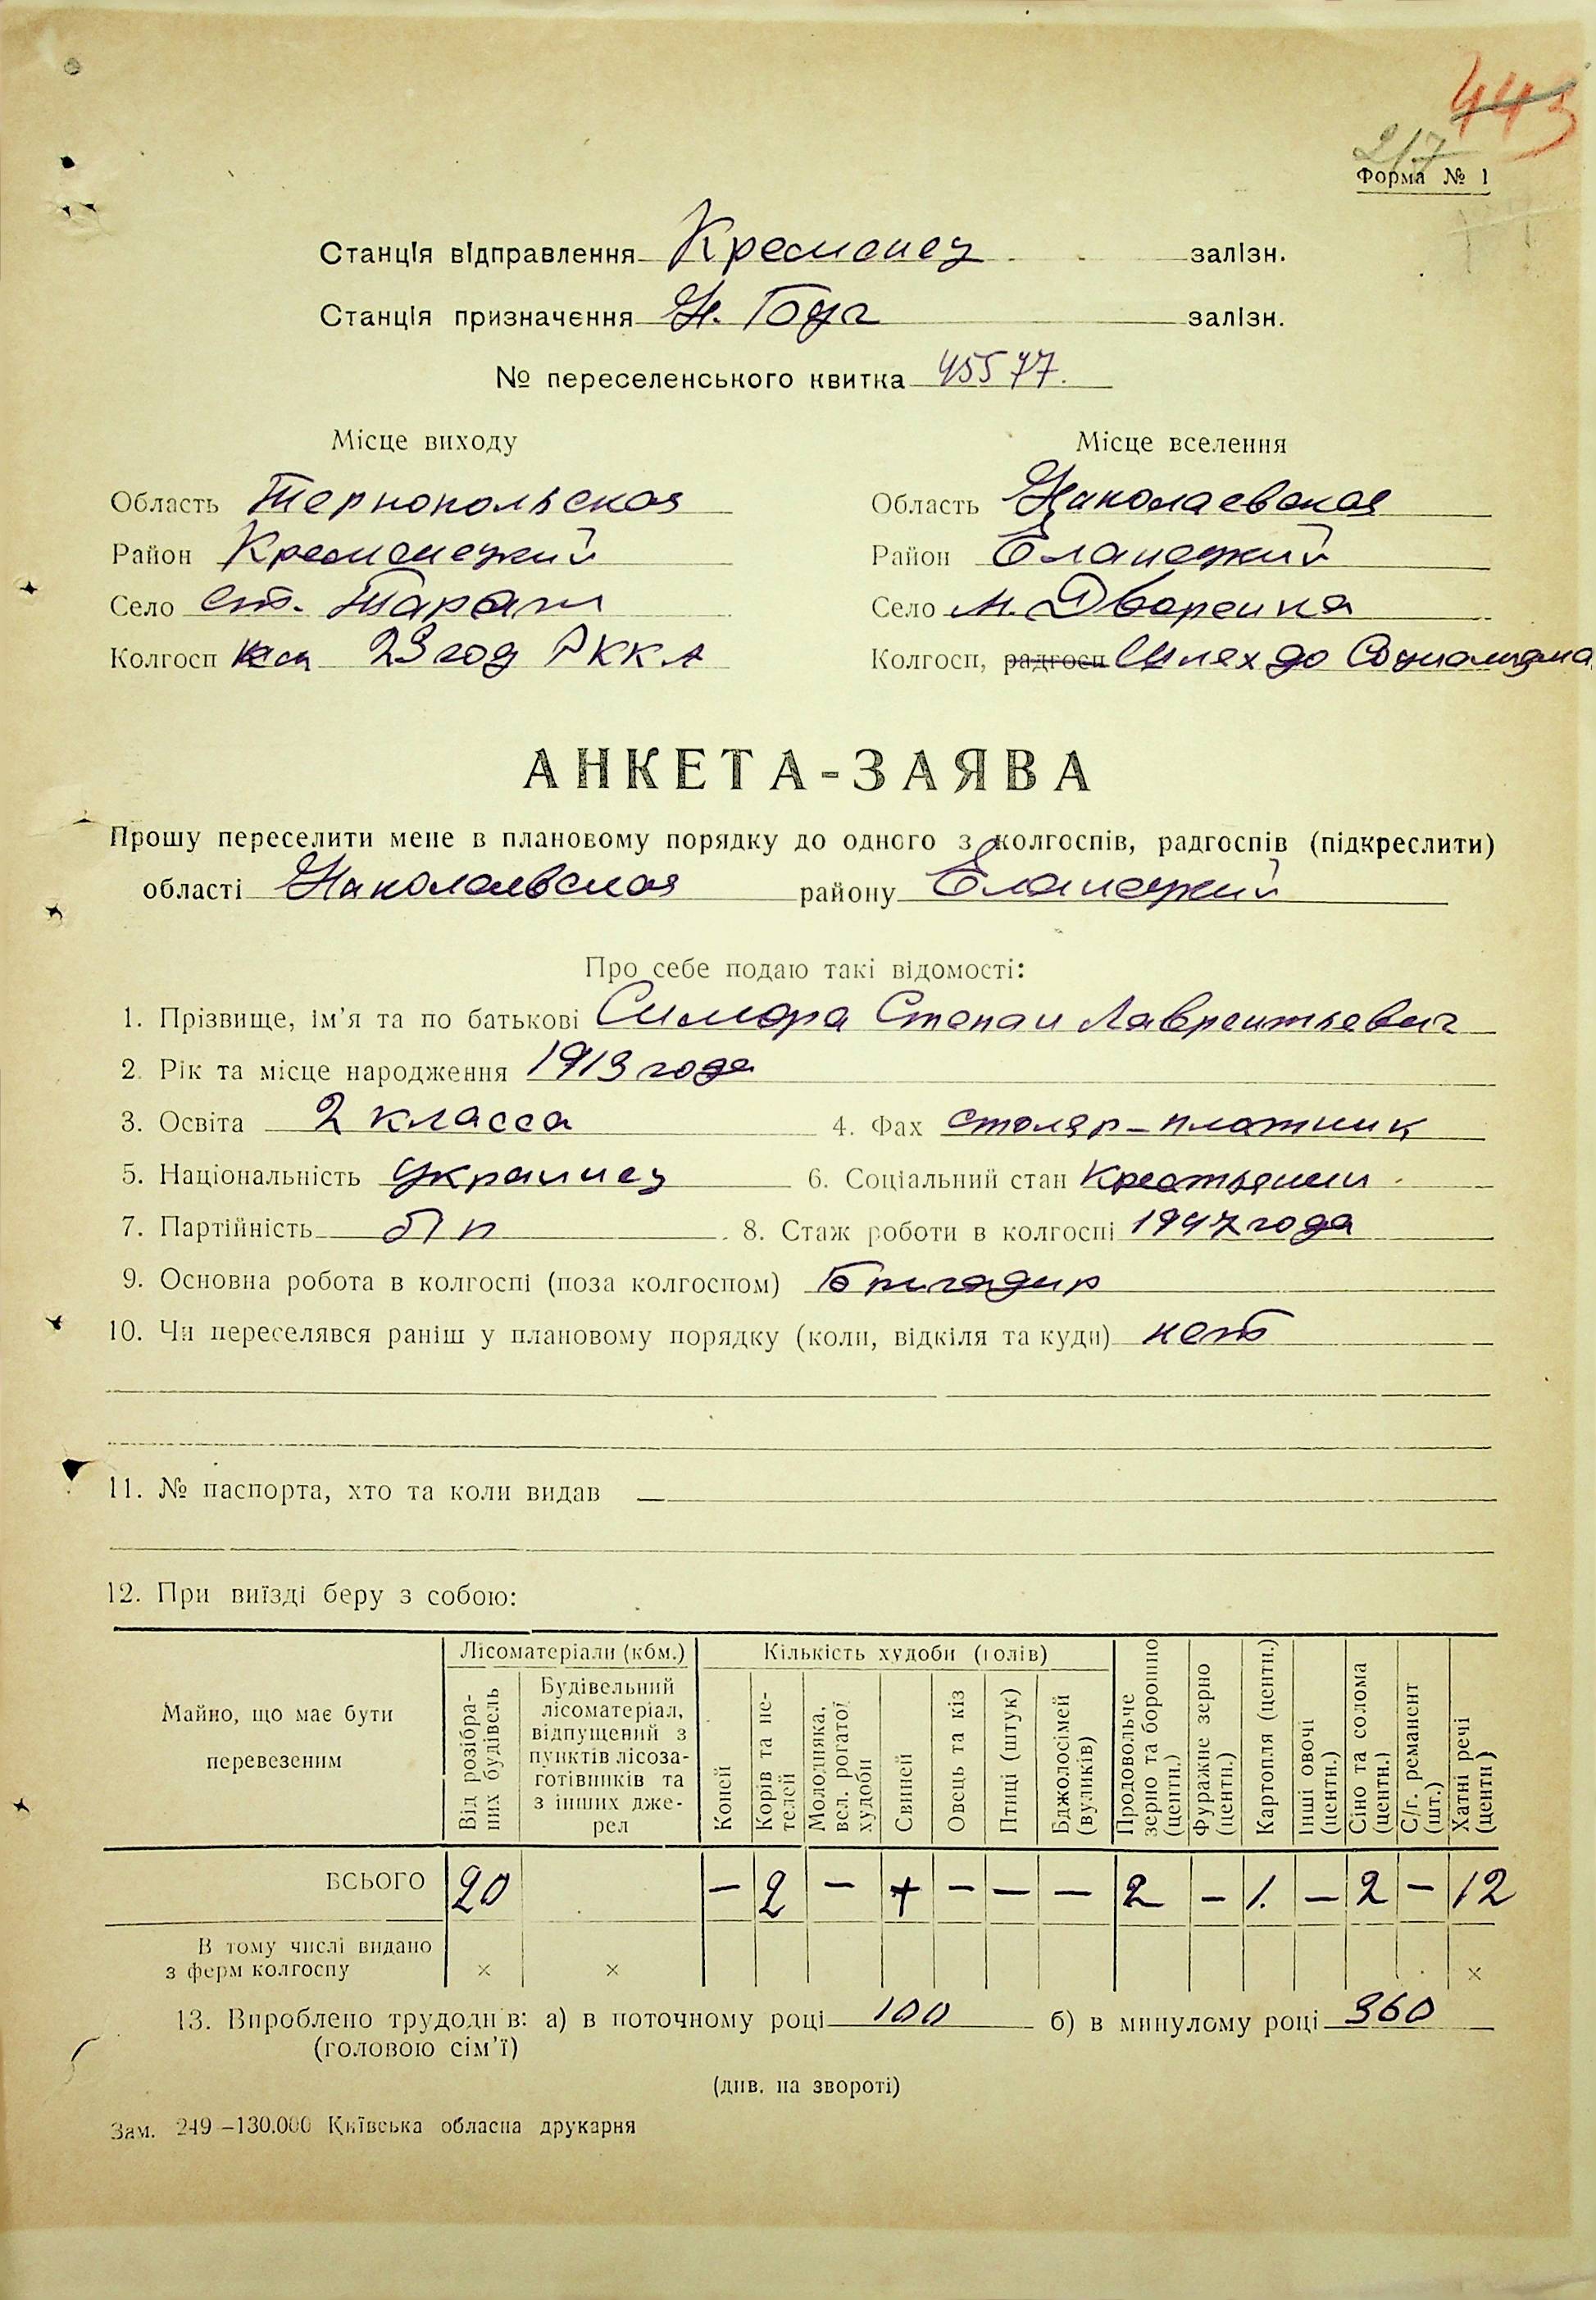 443
217
Форма № 1
Станція відправлення Кременец залізн.
Станція призначення Н. Буг залізн.
№ переселенського квитка 45577.
Місце виходу Місце вселення
Область Тернопольская Область Николаевская
Район Кременецкий Район Еланецкий
Село ст. Тараж Село М. Дворянка
Колгосп 23 год РККА Колгосп, радгосп Шлях до Социализма
АНКЕТА-ЗАЯВА
Прошу переселити мене в плановому порядку до одного з колгоспів, радгоспів (підкреслити)
області Николаевская району Еланецкий
Про себе подаю такі відомості:
1. Прізвище, ім’я та по батькові Степан Лаврентьевич
2. Рік та місце народження 1913 года
3. Освіта 2 класса 4. Фах столяр-плотник
5. Національність украинец 6. Соціальний стан Крестьянин
7. Партійність бп 8. Стаж роботи в колгоспі 1947 года
9. Основна робота в колгоспі (поза колгоспом) Бригадир
10. Чи переселявся раніш у плановому порядку (коли, відкіля та куди) нет
11. № паспорта, хто та коли видав —
12. При виїзді беру з собою:
Майно, що має бути перевезеним
Лісоматеріали (кбм.) Кількість худоби (голів)
Від розібраних будівель
Будівельний лісоматеріал, відпущений з пунктів лісозаготівників та з інших джерел
Коней
Корів та нетелей
Молодняка, вел. рогатої худоби
Свиней
Овець та кіз
Птиці (штук)
Бджолосімей (вуликів)
Продовольче зерно та борошно (центн.)
Фуражне зерно (центн.)
Картопля (центн.)
Інші овочі (центн.)
Сіно та солома (центн.)
С/г. реманент (шт.)
Хатні речі (центн)
ВСЬОГО 20 – 2 – + – – – 2 – 1. – 2 – 12
В тому числі видано
з ферм колгоспу × × ×
13. Вироблено трудоднів: а) в поточному році 100 б) в минулому році 360
(головою сім’ї)
(див. на звороті)
Зам. 249—130.000 Київська обласна друкарня